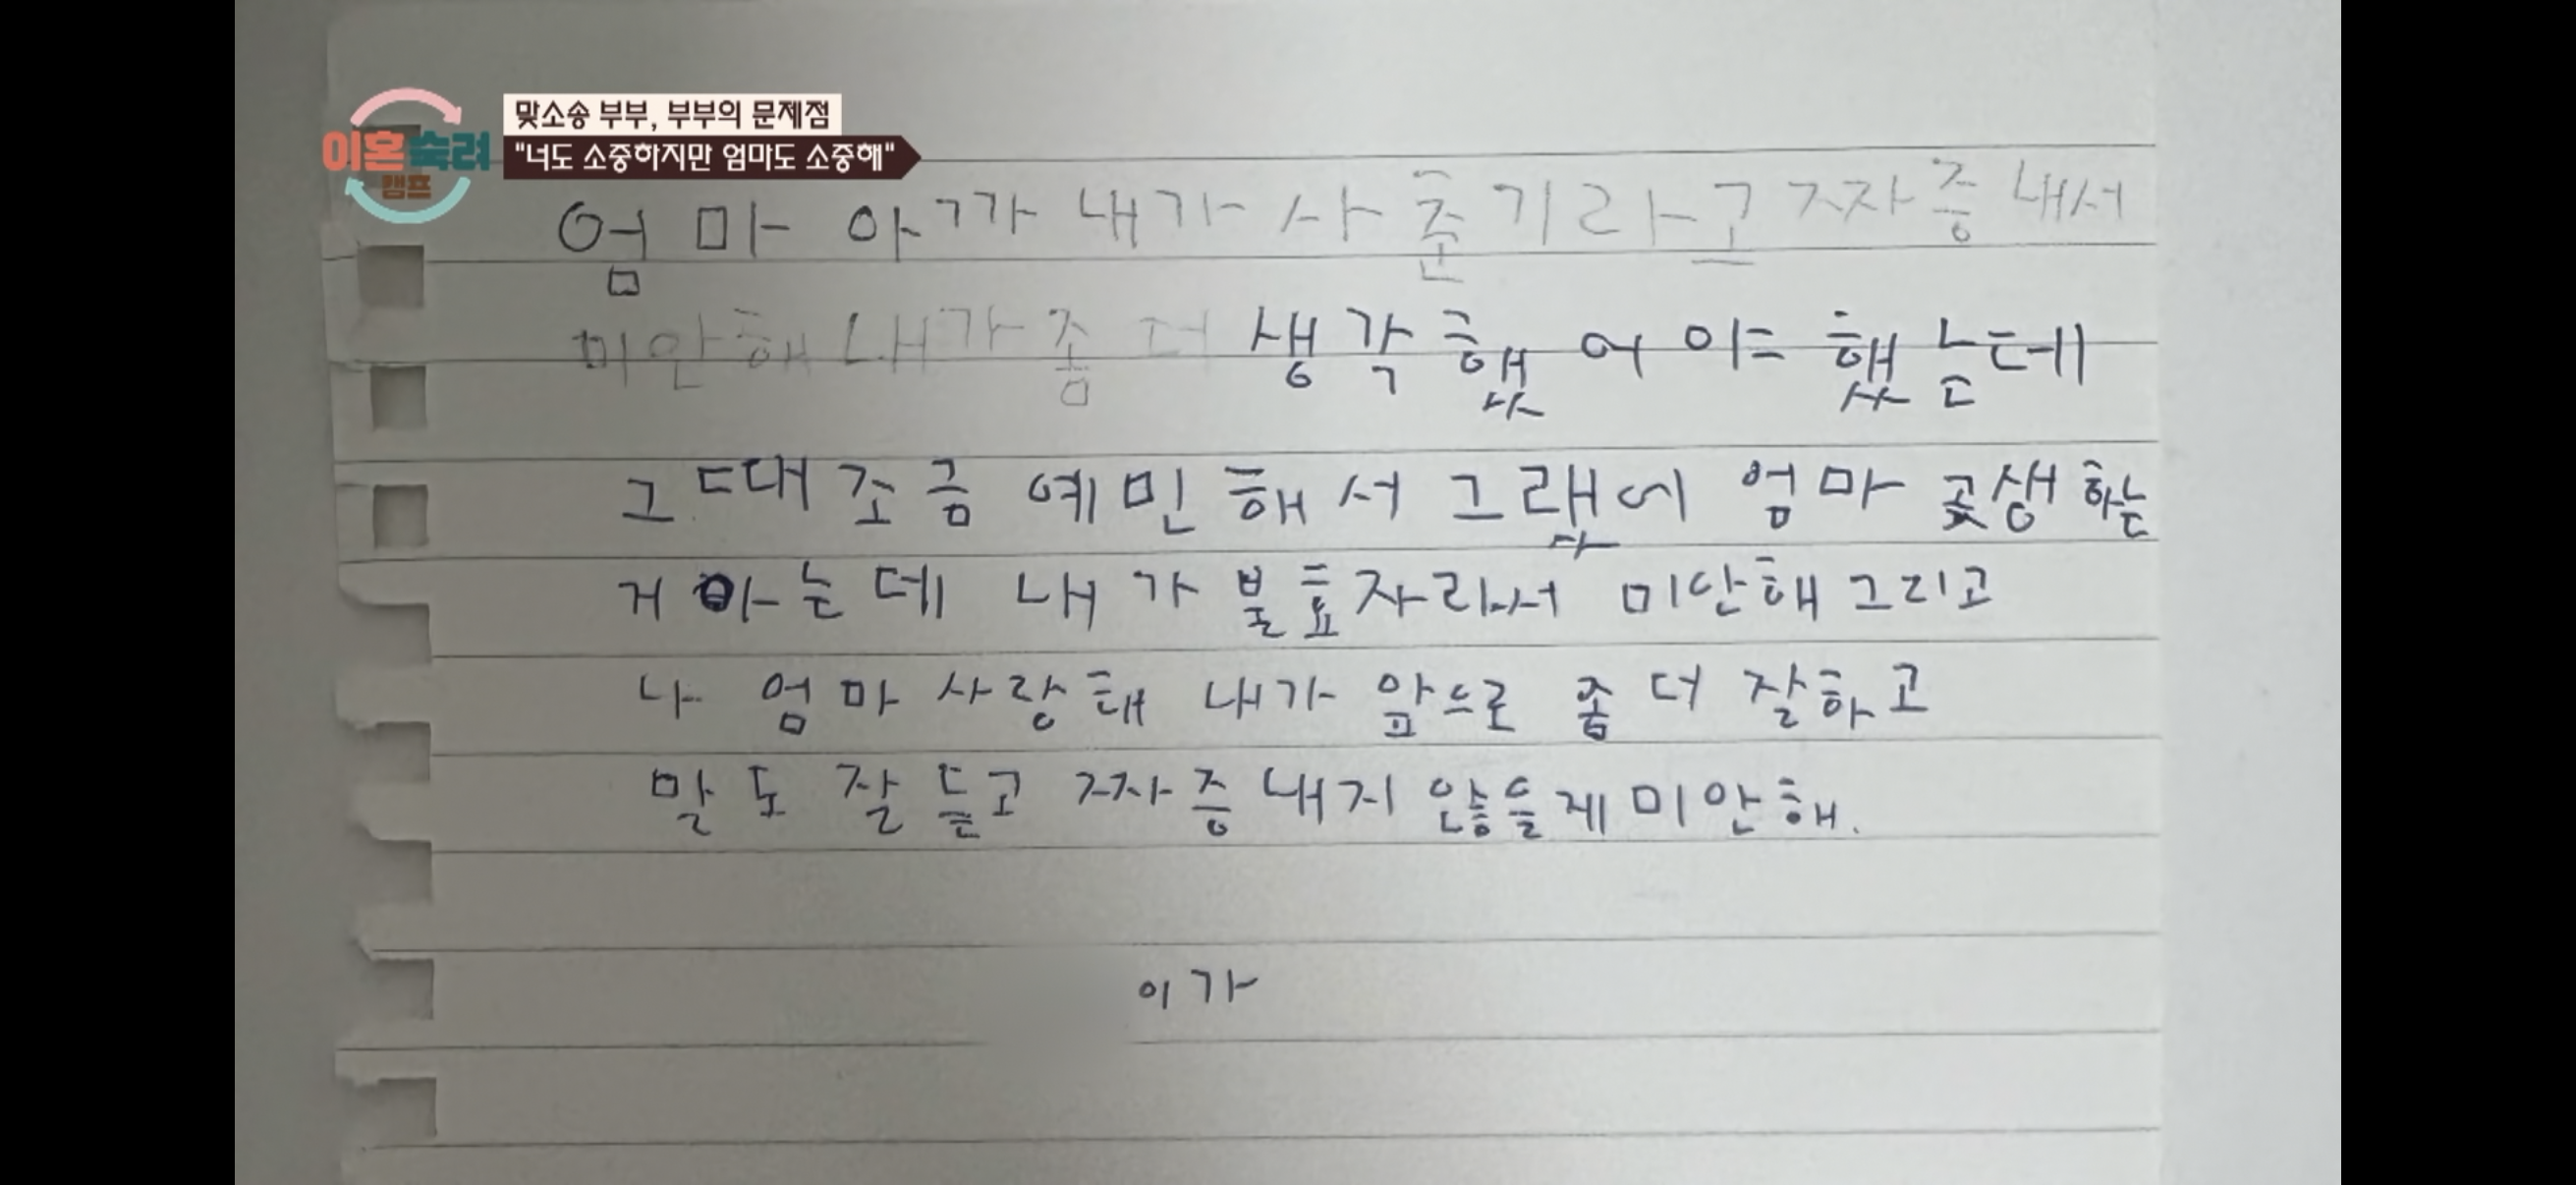 맞소송 부부, 부부의 문제점
이혼 숙려
캠프
"너도 소중하지만 엄마도 소중해"
엄마 아까 내가 사춘기라고 짜증내서
미안해 내가 좀 더 생각했어야 했는데
그때 조금 예민해서 그랬어 엄마 곶생하는
거 아는데 내가 불효자라서 미안해 그리고
나 엄마 사랑해 내가 앞으로 좀 더 잘하고
말도 잘 듣고 짜증내지 않을게 미안해.
이가